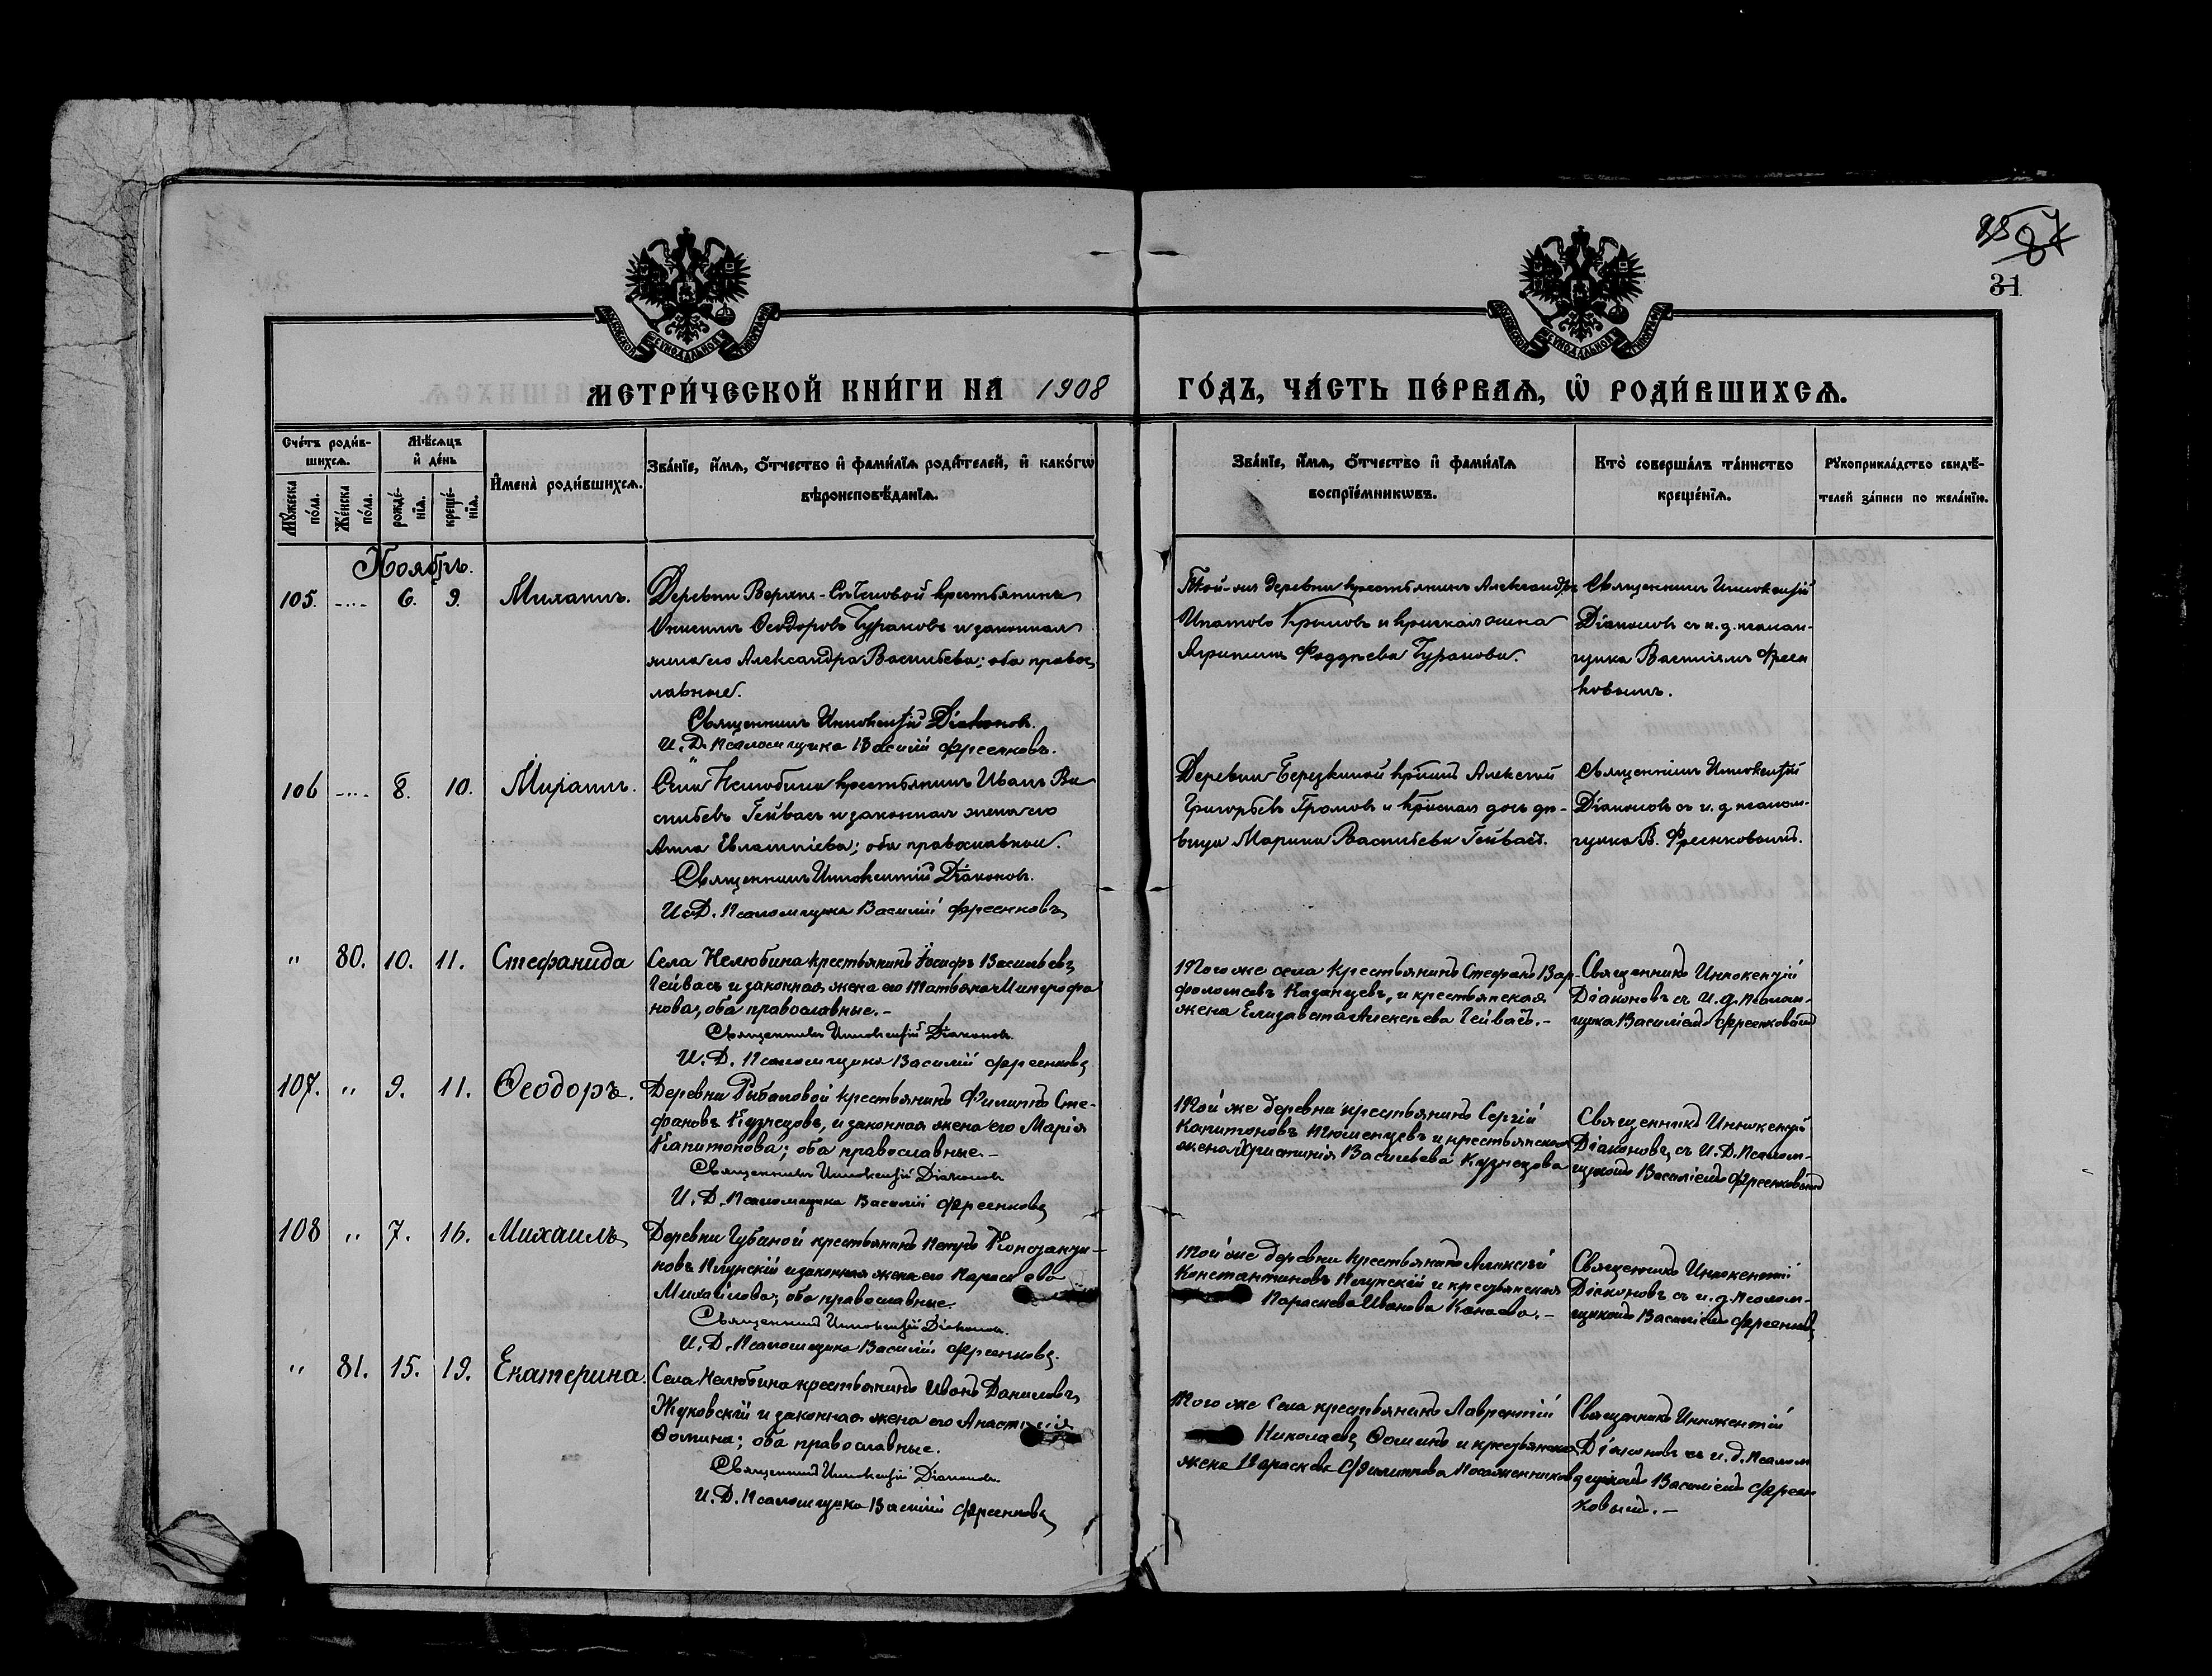 31
МЕТРИ́ЧЕСКОЙ КНИ́ГИ НА 1908 ГО́ДЪ, ЧА́СТЬ ПЕ́РВАѦ, Ѡ҆ РОДИ́ВШИХСѦ.
Сче́тъ роди́в-
шихсѧ.
Мѣ́сѧцъ
и҆ де́нь
Мꙋ́жеска по́ла.
Же́нска по́ла.
рожде́-
нїѧ.
креще́-
нїѧ.
И҆мена̀ роди́вшихсѧ.
Зва́нїе, и҆́мѧ, ѻ҆́тчество и҆ фами́лїѧ роди́телей, и҆ како́гѡ
вѣроисповѣ́данїѧ.
Зва́нїе, и҆́мѧ, ѻ҆́тчество и҆ фами́лїѧ
воспрїе́мникѡвъ.
Кто̀ соверша́лъ та́инство
креще́нїѧ.
Рꙋкоприкла́дство свидѣ́-
телей за́писи по жела́нїю.
Ноябрь.
105. -..- 6. 9. Михаилъ.
Деревни Верхне-Сѣчновой крестьянинъ
Ѳеодоровъ Бураковъ и законная
жена его Александра Васильева; оба правос
лавные.
Священникъ Иннокентій Діаконовъ.
И. Д. Псаломщика Василій Фреенковъ.
Той-же деревни крестьянинъ Александръ
Ипатовъ Крыловъ и крестьянская жена
Агрипина Фаддѣева Буракова.
Священникъ Иннокентій
Діаконовъ съ и. д. псалом-
щика Василіемъ Фреен
ковымъ.
106 -..- 8. 10. Михаилъ.
Села Нелюбина крестьянинъ Иванъ Ва
сильевъ Гейвасъ и законная жена его
Анна Евлампіева; оба православные.
Священникъ Иннокентій Діаконовъ.
И. Д. Псаломщика Василій Фреенковъ
Деревни Березкиной кр-нъ Алексѣй
Григорьевъ Громовъ и дочь дѣ-
вица Марина Васильева Гейвасъ.
Священникъ Иннокентій
Діаконовъ съ и. д. псалом-
щика В. Фреенковымъ.
" 80. 10. 11. Стефанида
Села Нелюбина крестьянинъ Іосифъ Васильевъ
Гейвасъ и законная жена его Татьяна Митрофа
нова, оба православные.-
Священникъ Иннокентій Діаконовъ.
И. Д. Псаломщика Василій Фреенковъ
Того же села крестьянинъ Стефанъ Вар-
фоломеевъ Казанцевъ, и крестьянская
жена Елизавета Алексѣева Гейвасъ.-
Священникъ Иннокентій
Діаконовъ съ И. д. псалом-
щика Василіемъ Фреенковымъ
107. " 9. 11. Ѳеодоръ.
Деревни Рыбаловой крестьянинъ Филиппъ Сте-
фановъ Кузнецовъ, и законная жена его Марія
Капитонова; оба православные.-
Священникъ Иннокентій Діаконовъ
И. Д. Псаломщика Василій Фреенковъ
Той же деревни крестьянинъ Сергій
Капитоновъ Тюменцевъ и крестьянская
жена Христинія Васильева Кузнецова
Священникъ Иннокентій
Діаконовъ, съ И. Д. Псалом-
щикомъ Василіемъ Фреенковымъ
108 " 7. 16. Михаилъ
Деревни Губиной крестьянинъ Петръ Константи-
новъ и законная жена его Параскева
Михайлова; оба православные.
Священникъ Иннокентій Діаконовъ.
И. Д. Псаломщика Василій Фреенковъ.
Той же деревни крестьянинъ Алексѣй
Константиновъ и крестьянская
Параскева Иванова Канаева.-
Священникъ Иннокентій
Діаконовъ съ и. д. псалом-
щикомъ Василіемъ Фреенковъ
" 81. 15. 19. Екатерина.
Села Нелюбина крестьянинъ Иванъ Даниловъ
Жуковскій и законная жена его Анастасія
Ѳомина; оба православные.
Священникъ Иннокентій Діаконовъ.
И. Д. Псаломщика Василій Фреенковъ
Того же Села крестьянинъ Лаврентій
Николаевъ Ѳоминъ и крестьянская
жена Параскева Филиппова
Священникъ Иннокентій
Діаконовъ съ и. д. псалом
щикомъ Василіемъ Фреен
ковымъ.-